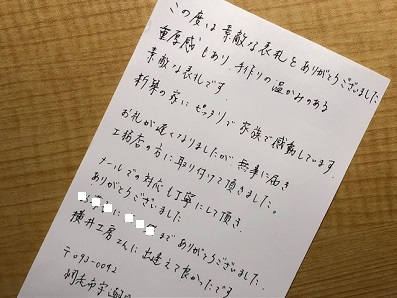 この度は素敵な表札をありがとうございました
重厚感もあり 手作りの温かみのある
素敵な表札です。
新築の家にピッタリで家族で感動しています。
お礼が遅くなりましたが無事に届き
工務店の方に取り付けて頂きました。
メールでの対応も丁寧にして頂き
ありがとうございました
に まで ありがとうございました。
横井工房さんに出逢えて良かったです
〒093-0042
網走市字潮見